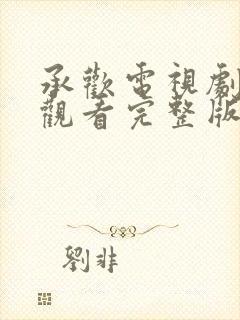 承歡電視劇
觀看完整版
劉非